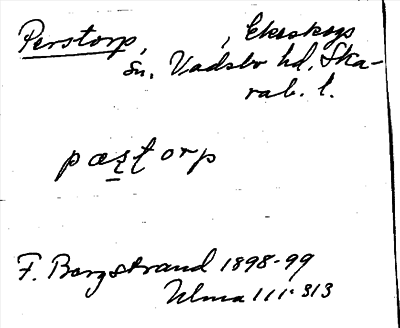 Perstorp, , Ekeskogs
sn. Vadsbo hd, Ska-
rab. l.
pæʂʈorp
F. Bergstrand 1898-99
Ulma 111:313